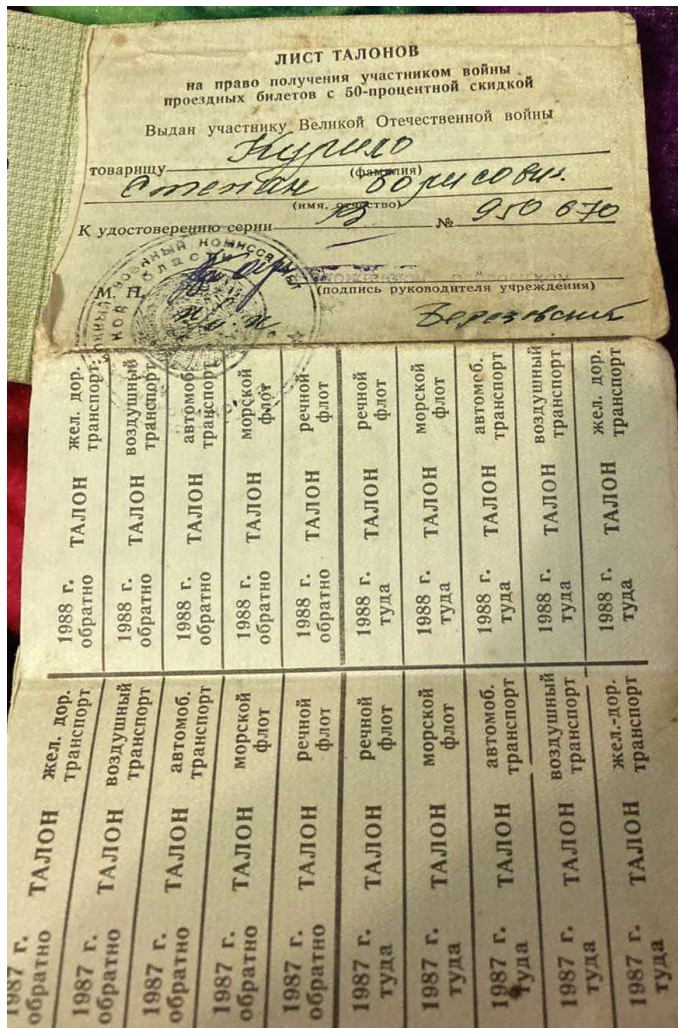 ЛИСТ ТАЛОНОВ
на право получения участником войны
проездных билетов с 50-процентной скидкой
Выдан участнику Великой Отечественной войны
товарищу Курило
(фамилия)
Степан Борисович
(имя, отчество)
К удостоверению серии В № 950670
ВОЕННЫЙ КОМИССАРИАТ
ОБЛАСТИ
М. П.
(подпись руководителя учреждения)
Березовский
1988 г. обратно ТАЛОН жел. дор. транспорт
1988 г. обратно ТАЛОН воздушный транспорт
1988 г. обратно ТАЛОН автомоб. транспорт
1988 г. обратно ТАЛОН морской флот
1988 г. обратно ТАЛОН речной флот
1988 г. туда ТАЛОН речной флот
1988 г. туда ТАЛОН морской флот
1988 г. туда ТАЛОН автомоб. транспорт
1988 г. туда ТАЛОН воздушный транспорт
1988 г. туда ТАЛОН жел. дор. транспорт
1987 г. обратно ТАЛОН жел. дор. транспорт
1987 г. обратно ТАЛОН воздушный транспорт
1987 г. обратно ТАЛОН автомоб. транспорт
1987 г. обратно ТАЛОН морской флот
1987 г. обратно ТАЛОН речной флот
1987 г. туда ТАЛОН речной флот
1987 г. туда ТАЛОН морской флот
1987 г. туда ТАЛОН автомоб. транспорт
1987 г. туда ТАЛОН воздушный транспорт
1987 г. туда ТАЛОН жел.-дор. транспорт